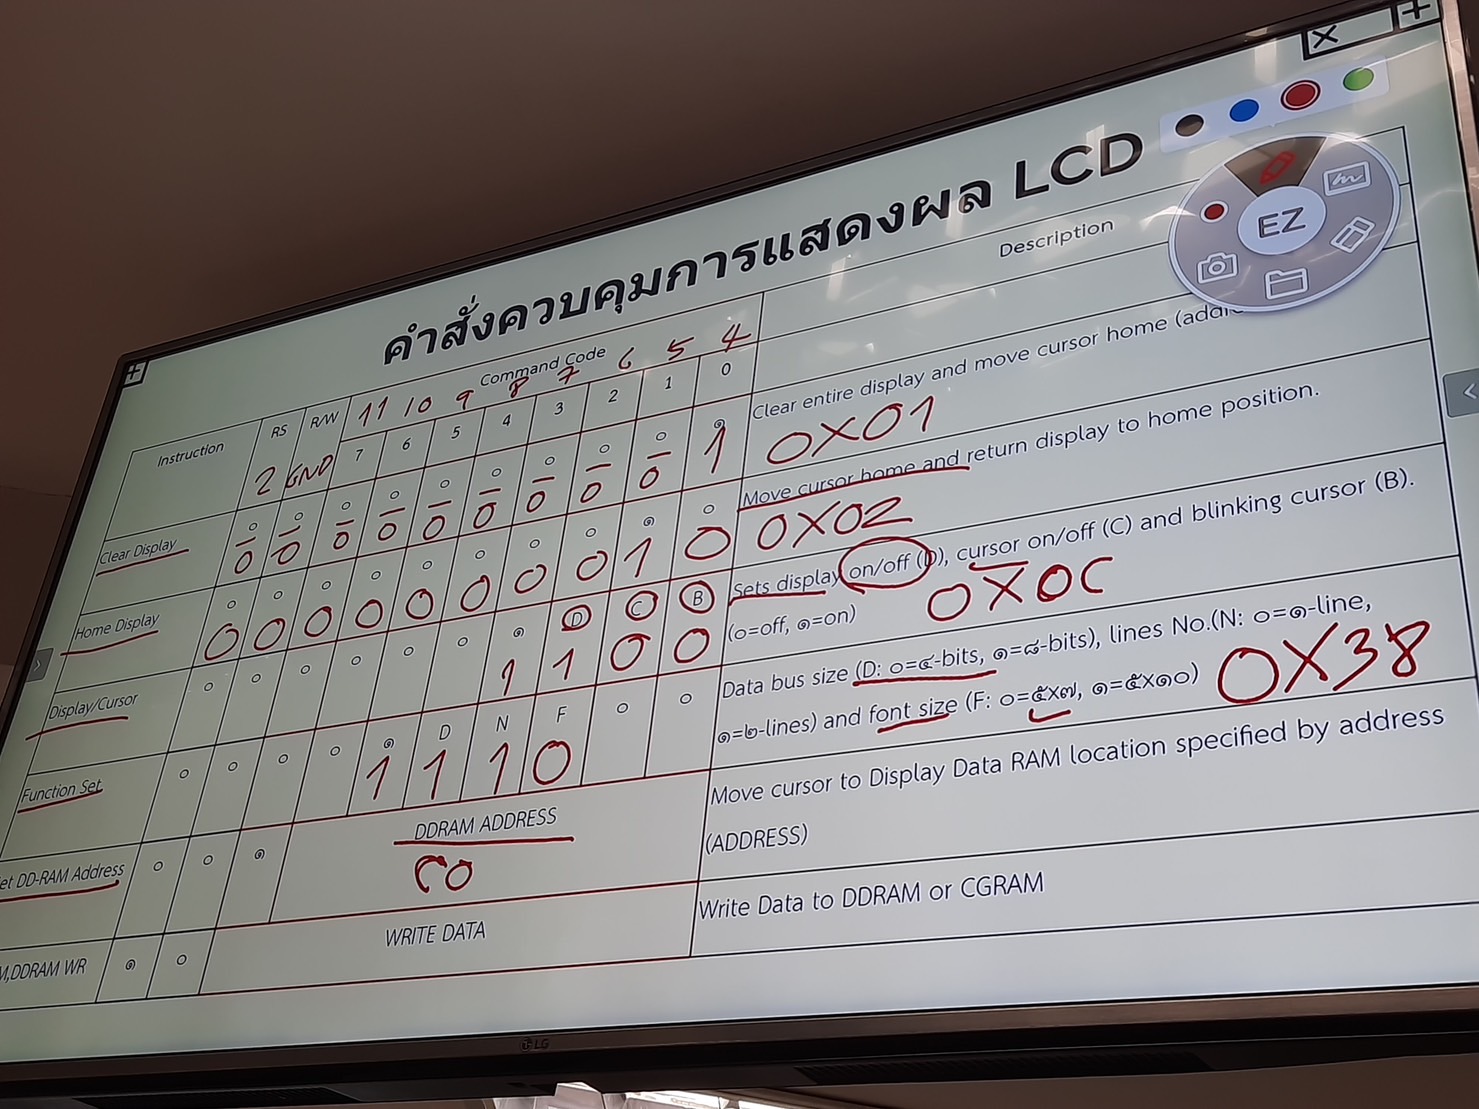 คำสั่งควบคุมการแสดงผล LCD
EZ
Instruction RS R/W Command Code Description
11 10 9 8 7 6 5 4
2 GND 7 6 5 4 3 2 1 0
Clear Display ๐ ๐ ๐ ๐ ๐ ๐ ๐ ๐ ๐ ๑ Clear entire display and move cursor home
0 0 0 0 0 0 0 0 0 1 0X01
Home Display ๐ ๐ ๐ ๐ ๐ ๐ ๐ ๐ ๑ ๐ Move cursor home and return display to home position.
0 0 0 0 0 0 0 0 1 0 0X02
Display/Cursor ๐ ๐ ๐ ๐ ๐ ๐ ๑ D C B Sets display on/off (D), cursor on/off (C) and blinking cursor (B).
1 1 0 0 (๐=off, ๑=on) 0X0C
Function Set ๐ ๐ ๐ ๐ ๑ D N F ๐ ๐ Data bus size (D: ๐=๔-bits, ๑=๘-bits), lines No.(N: ๐=๑-line,
1 1 1 0 ๑=๒-lines) and font size (F: ๐=๕X๗, ๑=๕X๑๐) 0X38
et DD-RAM Address ๐ ๐ ๑ DDRAM ADDRESS Move cursor to Display Data RAM location specified by address
(ADDRESS)
M,DDRAM WR ๑ ๐ WRITE DATA Write Data to DDRAM or CGRAM
LG